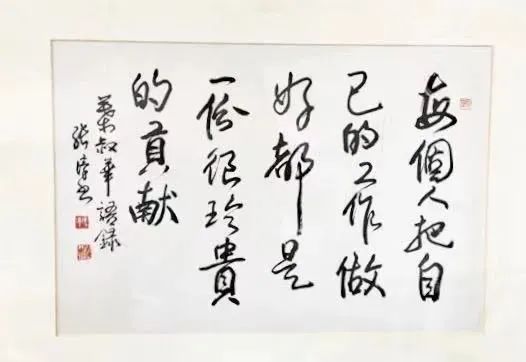 每個人把自
己的工作做
好都是
一份很珍貴
的貢献
葉叔華語録
张书